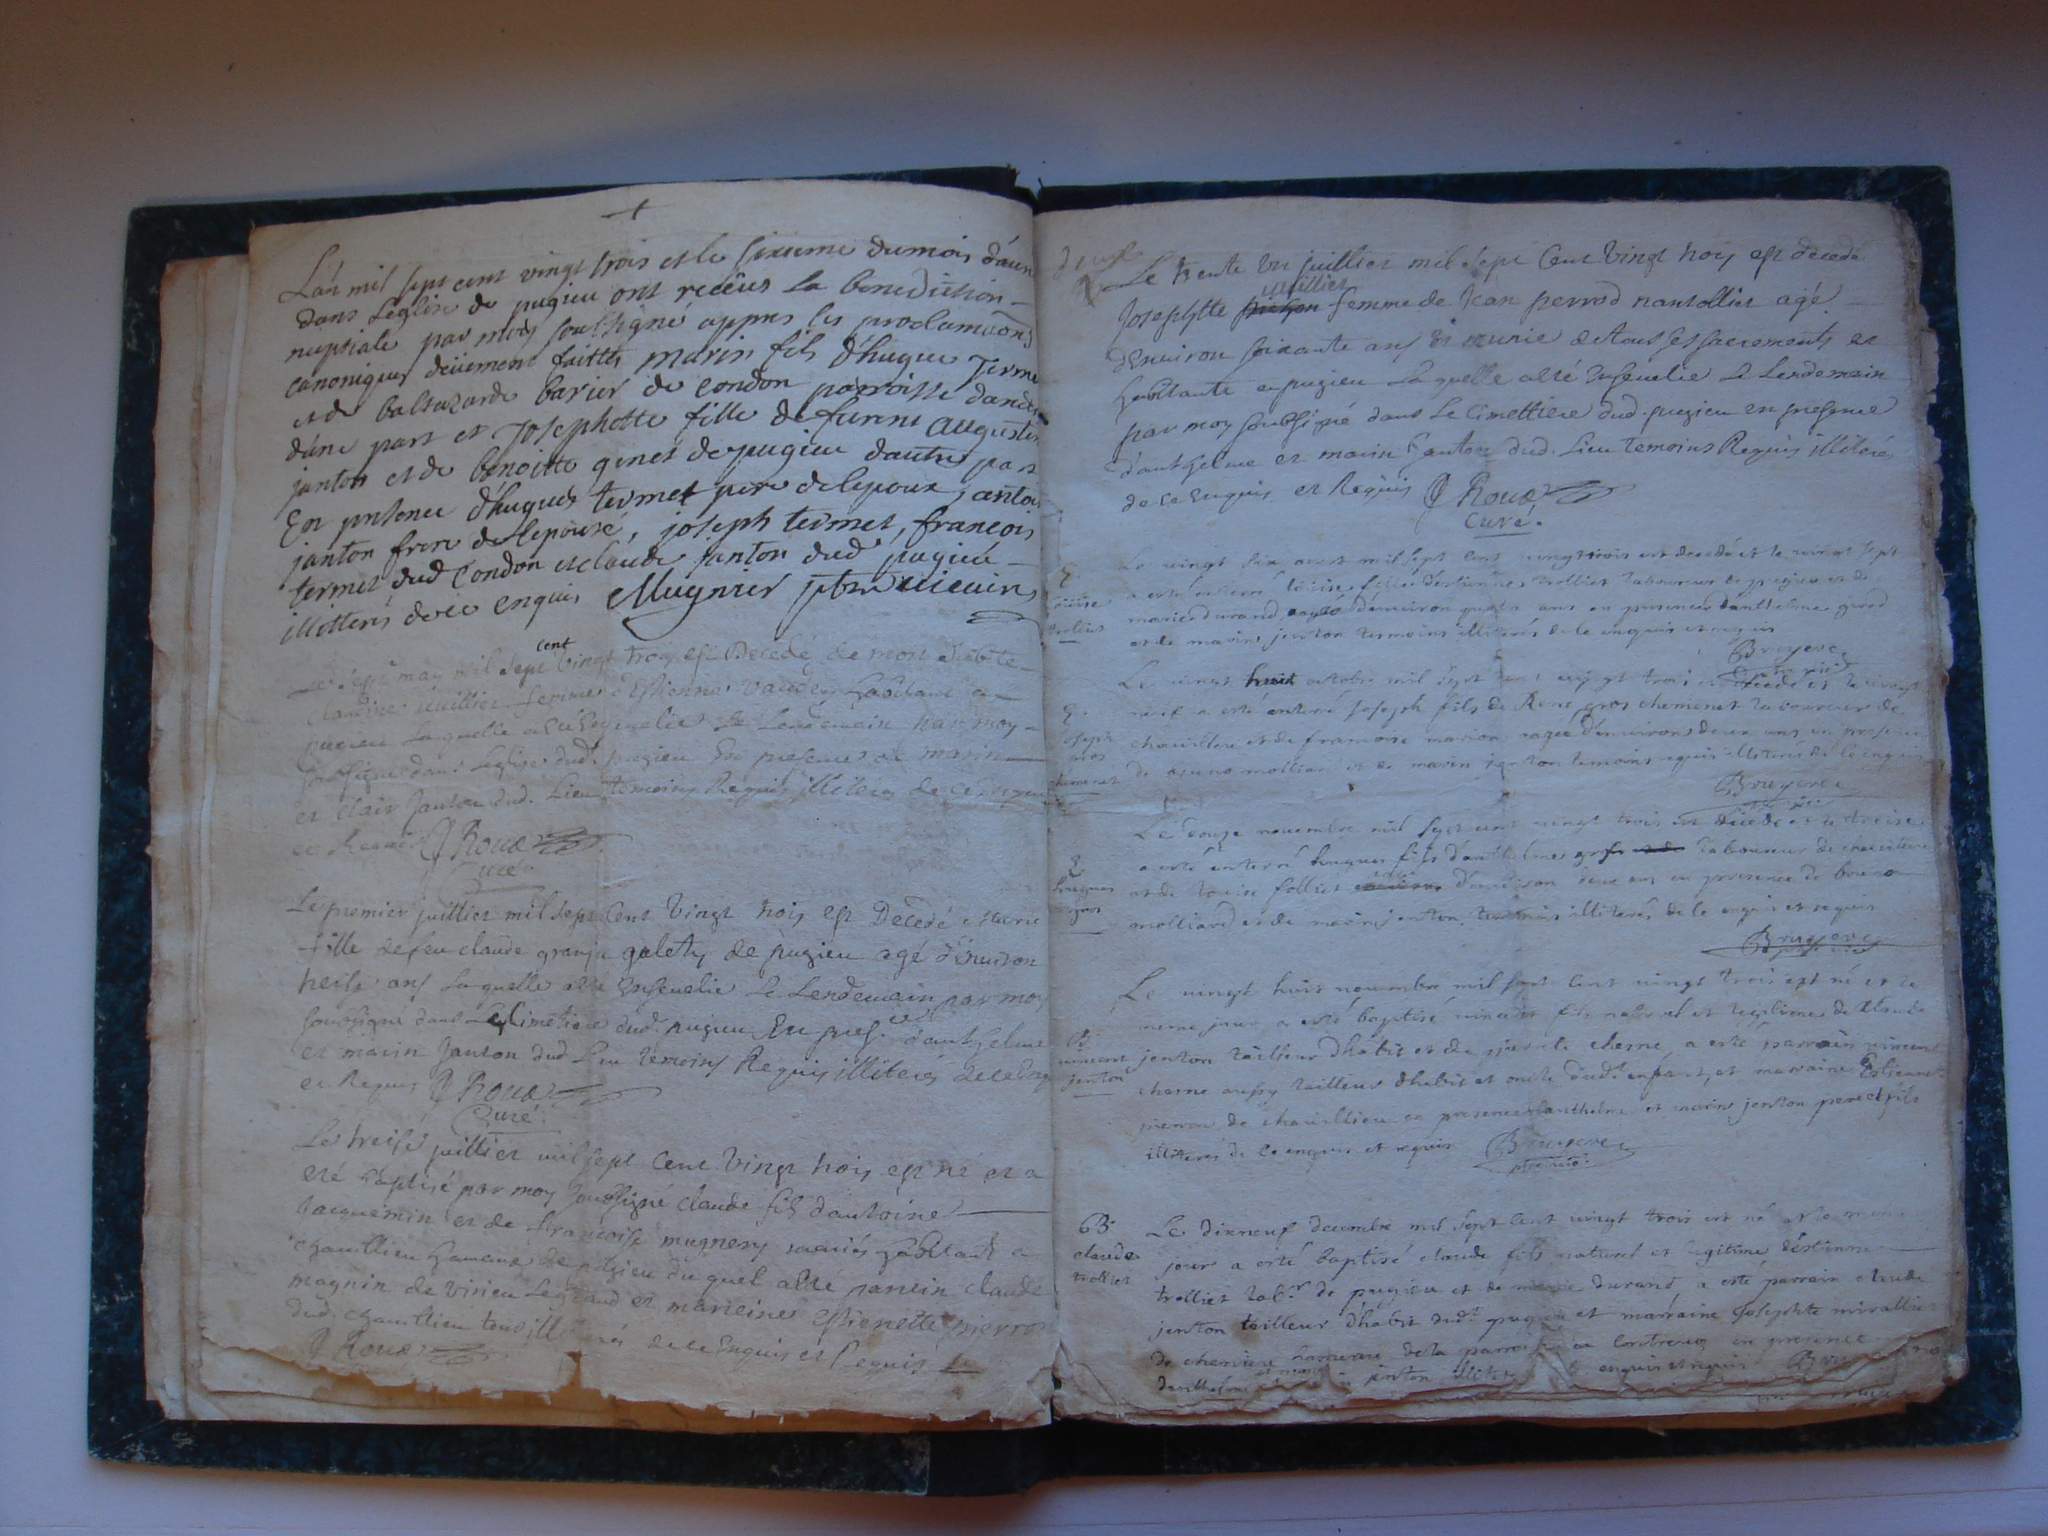 L'an mil sept cent vingt trois et le sixieme du mois d'avril
dans L'eglise de pugieu ont recêus la benediction
nuptiale par moy soussigné appres les proclamaõns
canoniques deüement faittes marin fils d'hugue Terme
et de baltazarde barier de Condon parroisse dandert
d'une part et Josephette fille de furent augustin
janton et de benoitte genet de pugieu dautre part
En presence d'hugues termet pere de lepoux, antoi
janton frere de lepouse, joseph termet, francois
termet dud Condon et claude janton dud pugieu
illitterés de ce enquis Mugnier ptre vicair
Le sept may mil sept cent vingt troy est decedé de mort
Claudine juillier femme d'Estienne habitant a
pugieu laquelle a esté ensevelie le Lendemain par moy
soussigné dans L'eglise dud. pugieu En presence de marin
et clair Janton dud. Lieu temoins Requis illiterés de ce enquis
et Requis J Roux
Curé
Le premier juillier mil sept Cent Vingt trois est Decedé Marie
fille de feu claude granja galety de pugieu agé d'environ
treise ans Laquelle a esté ensevelie Le Lendemain par moy
soussigné dans Le Cimetiere dud. pugieu En presce d'anthelme
et marin Janton dud Lieu temoins Requis illiterés de ce Enq
et Requis J Roux
Curé
Le treise juillier mil sept Cent Vingt trois est né et a
eté baptisé par moy soussigné claude fils d'antoine
Jacquemin et de francoise mugnery mariés habitant a
chavillieu hameau de pugieu duquel a été parrein claude
magnin de virieu Le grand et marreine Estienette pierron
dud. chavillieu tous illiterés de ce Enquis et Requis
J Roux
Le trente un juillier mil sept Cent Vingt trois est decedé
juillier
Josephtte femme de Jean perrod nantollier agé
d'Environ soixante ans et munie de tous ses sacrements et
habitante a pugieu Laquelle a été ensevelie Le Lendemain
par moy soussigné dans Le Cimettiere dud. pugieu en presence
d'anthelme et marin Janton dud. Lieu temoins Requis illiterés
de ce Enquis et Requis J Roux
Curé.
Le vingt six aoust mil sept cent vingt trois est decedé et le vingt sept
a esté enterré louise fille d'estienne trolliet laboureur de pugieu et de
marie durand agée d'environ quatre ans en presence d'anthelme
et de marin jenton temoins illiterés de ce enquis et requis
Bruyere
Le vingt huit octobre mil sept cent vingt trois est decedé et le vingt
neuf a esté enterré joseph fils de Rene gros chemenet laboureur de
chavillieu et de francoise marion agée d'environ deux ans en presence
de molliard et de marin jenton temoins requis illiterés de ce enquis
Bruyere
Le douze novembre mil sept cent vingt trois est decedé et le treise
a esté enterré hugues fils d'anthelme gros laboureur de chavillieu
et de louise folliet d'environ deux ans en presence de
molliard et de marin jenton temoins illiterés de ce enquis et requis
Bruyere
Le vingt huit novembre mil sept cent vingt trois est né et le
meme jour a esté baptisé vincent fils naturel et legitime de Claude
jenton tailleur d'habit et de cherne a esté parrain vincent
cherne aussy tailleur d'habit et oncle dudt enfant, et marraine
de chavillieu en presence d'anthelme et marin jenton pere et fils
illiterés de ce enquis et requis Bruyere
B
vincent
jenton
B
claude
trolliet
Le dixneuf decembre mil sept cent vingt trois est né et le meme
jour a esté baptisé claude fils naturel et legitime d'estienne
trolliet labr de pugieu et de marie durand, a esté parrain claude
jenton tailleur d'habit dudt pugieu et marraine josephte
de hameau de la parroisse de en presence
d'anthelme et marin jenton illiterés enquis et requis